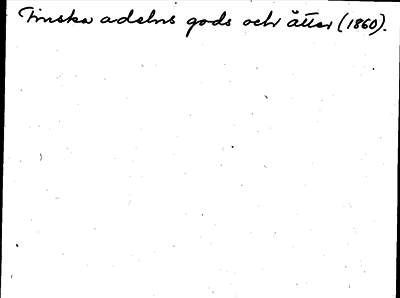 Finska adelns gods och ätter (1860).